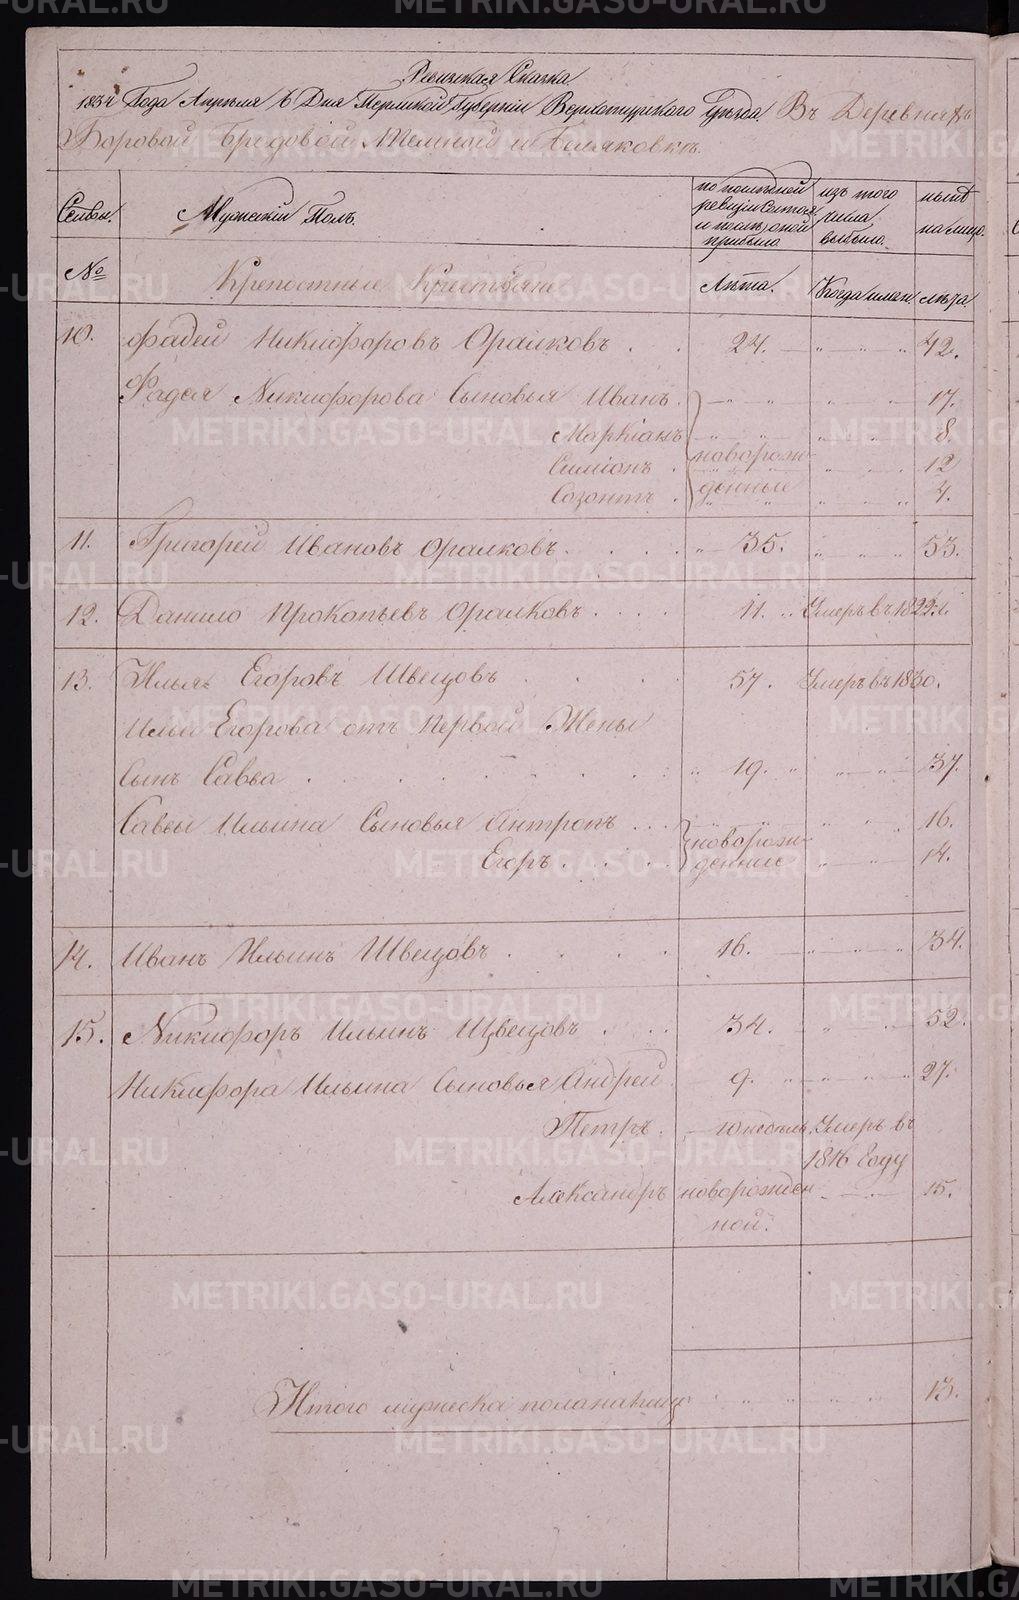 Ревизская Сказка
1834 Года Апреля 6 Дня Пермской Губернии Верхотурского Уезда. Въ Деревняхъ
Боровой, Бредовой, Темной и Беляковкъ.
Семьи. Мужескій Полъ. по последней ревизіи состояло и послѣ оной прибыло изъ того числа выбыло. нынѣ на лицо.
№ Крепостные Крестьяне Лѣта. Когда имен. лѣта.
10. Фадей Никифоровъ Оралковъ . . 24. 42.
Фадея Никифорова Сыновья Иванъ. 17.
Маркіанъ новорож- 8.
Симіонъ . 12
Созонтъ . денные 4.
11. Григорей Ивановъ Оралковъ . . . . 35. 53.
12. Данило Прокопьевъ Оралковъ . . . . 11. Умеръ въ 1822.
13. Илья Егоровъ Швецовъ . . . . 57. Умеръ въ 1830.
Ильи Егорова отъ Первой Жены
Сынъ Савва . . . . . . . 19. 37.
Саввы Ильина Сыновья Антропъ . . . новорож- 16.
Егоръ . . . . . денные 14.
14. Иванъ Ильинъ Швецовъ . . . . . 16. 34.
15. Никифоръ Ильинъ Швецовъ . . . 34. 52.
Никифора Ильина Сыновья Андрей 9. 27.
Петръ. 10 недель. Умеръ въ
1816 Году
Александръ новорожден 15.
ной.
Итого мужеска пола налицо 13.
METRIKI.GASO-URAL.RU